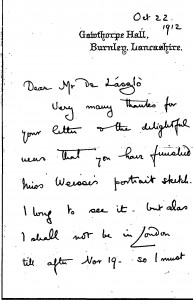 Oct 22.
1912
Gawthorpe Hall,
Burnley, Lancashire.
Dear Mr de László
Very many thanks for
your letter & the delightful
news that you have finished
Miss Weisse's portrait sketch.
I long to see it. but alas
I shall not be in London
till after Nov 19. so I must